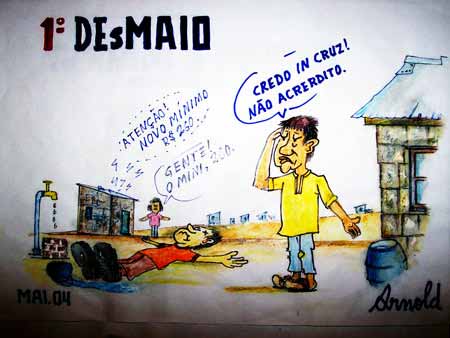 1º DEsMAIO
CREDO IN CRUZ!
NÃO ACRERDITO.
ATENÇÃO!
NOVO MÍNIMO
R$ 260...
GENTE!
O MIN, 260.
MAI.04
Arnold